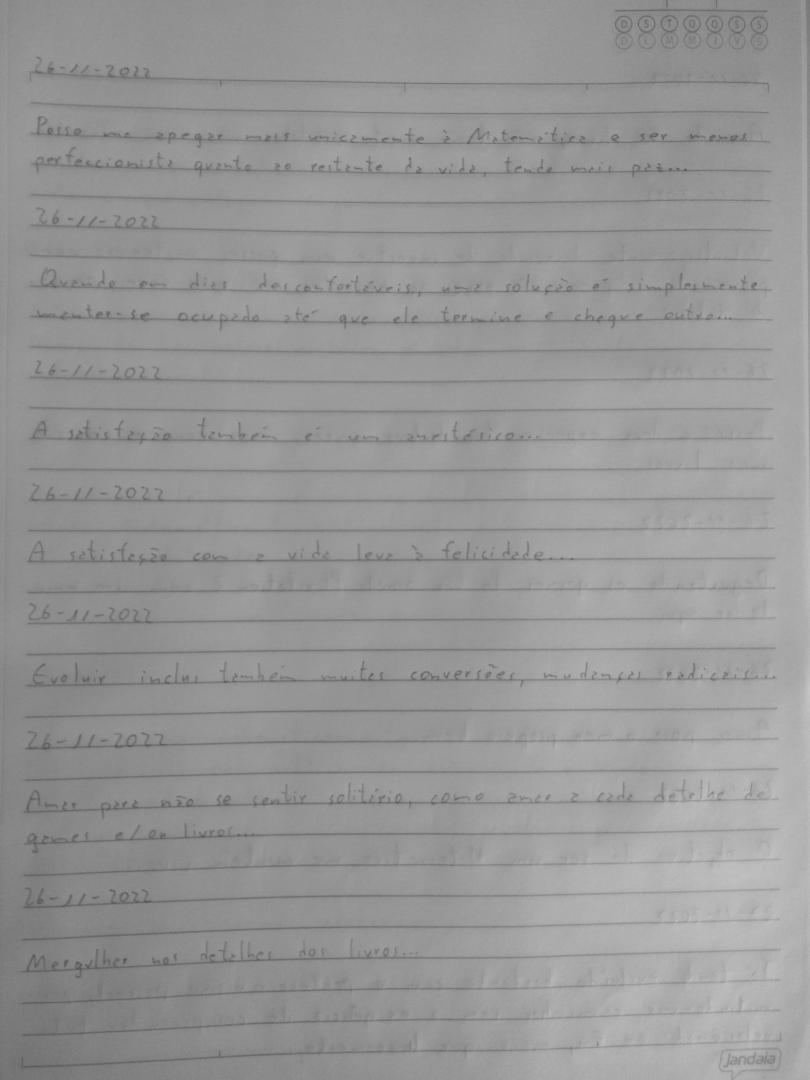 D S T Q Q S S
D L M M J V S
26-11-2022
Posso me apegar mais unicamente à Matemática e ser menos
perfeccionista quanto ao restante da vida, tendo mais paz...
26-11-2022
Quando em dias desconfortáveis, uma solução é simplesmente
manter-se ocupado até que ele termine e chegue outro...
26-11-2022
A satisfação também é um anestésico...
26-11-2022
A satisfação com a vida leva à felicidade...
26-11-2022
Evoluir inclui também muitas conversões, mudanças radicais...
26-11-2022
Amar para não se sentir solitário, como amar a cada detalhe de
games e/ou livros...
26-11-2022
Mergulhar nos detalhes dos livros...
Jandaia